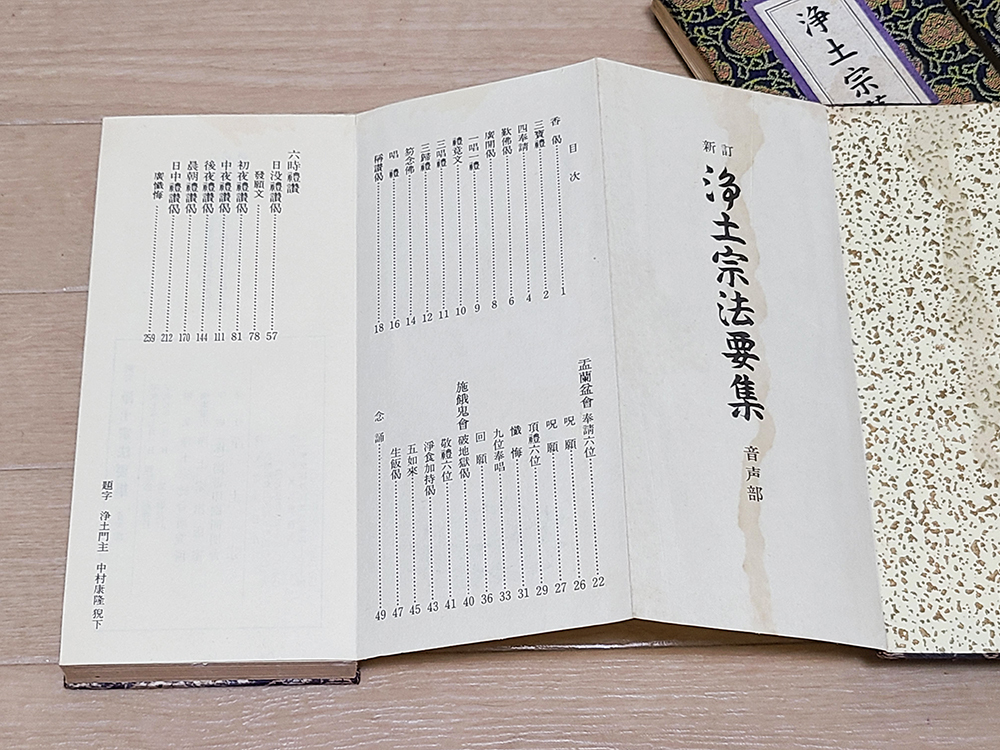 浄土宗
新訂
浄土宗法要集
音声部
目次
香偈……1
三寶禮……2
四奉請……4
歎佛偈……6
廣開偈……8
一唱一禮……9
禮竟文……10
三唱禮……11
三歸禮……12
笏念佛……14
唱禮……16
稱讃偈……18
盂蘭盆會 奉請六位……22
呪願……26
呪願……27
頂禮六位……29
懺悔……31
九位奉唱……33
回願……36
施餓鬼會 破地獄偈……40
敬禮六位……41
淨食加持偈……43
五如來……45
生飯偈……47
念誦……49
六時禮讃
日没禮讃偈……57
發願文……78
初夜禮讃偈……81
中夜禮讃偈……111
後夜禮讃偈……144
晨朝禮讃偈……170
日中禮讃偈……212
廣懺悔……259
題字 浄土門主 中村康隆 猊下